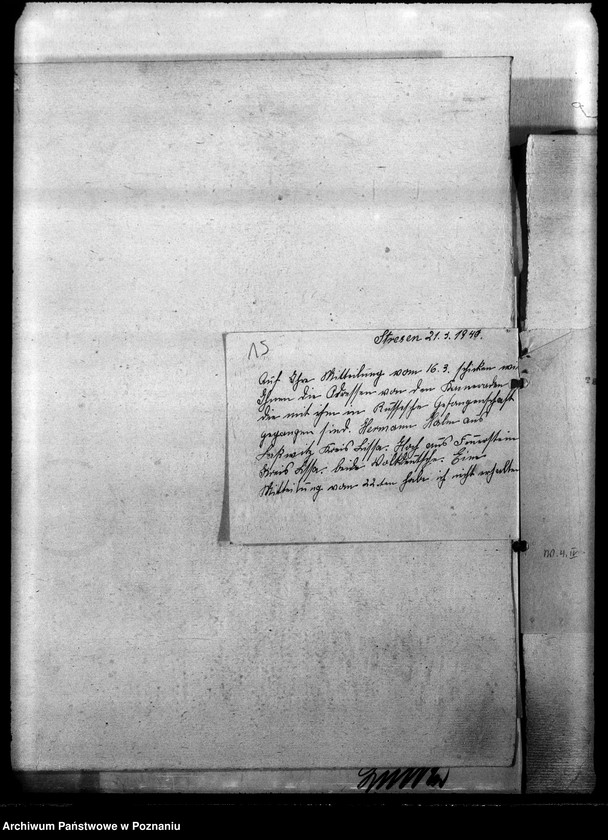 15
Stresen 21.3.1941.
Auf Ihre Mitteilung vom 16.3. schicken wir
Ihnen die Adressen von den Kameraden
die mit ihm in Russische Gefangenschaft
gegangen sind. Hermann aus
Laßwitz Kreis Lissa. aus Feuerstein
Kreis Lissa. beide Volksdeutsche. Eine
Mitteilung vom 22.ten habe ich nicht erhalten
no. 4. IV
Archiwum Państwowe w Poznaniu